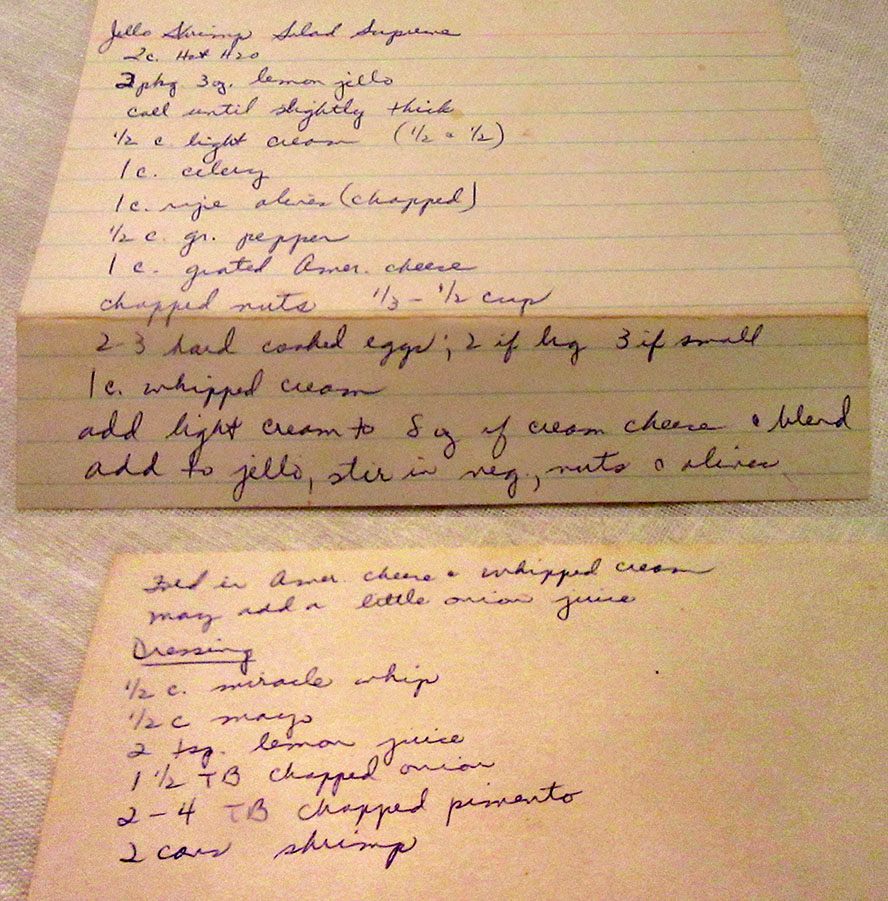 Jello Shrimp Salad Supreme
2c. Hot H2O
2 pkg. 3 oz. lemon jello
cool until slightly thick
1/2 c. light cream (1/2 & 1/2)
1 c. celery
1 c. ripe olives (chopped)
1/2 c. gr. pepper
1 c. grated Amer. cheese
chopped nuts 1/3 - 1/2 cup
2-3 hard cooked eggs; 2 if lrg 3 if small
1 c. whipped cream
add light cream to 8 oz of cream cheese & blend
add to jello, stir in veg., nuts & olives
Fold in Amer. cheese & whipped cream
may add a little onion juice
Dressing
1/2 c. miracle whip
1/2 c mayo
2 tsp. lemon juice
1 1/2 TB chopped onion
2 - 4 TB chopped pimento
2 cans shrimp